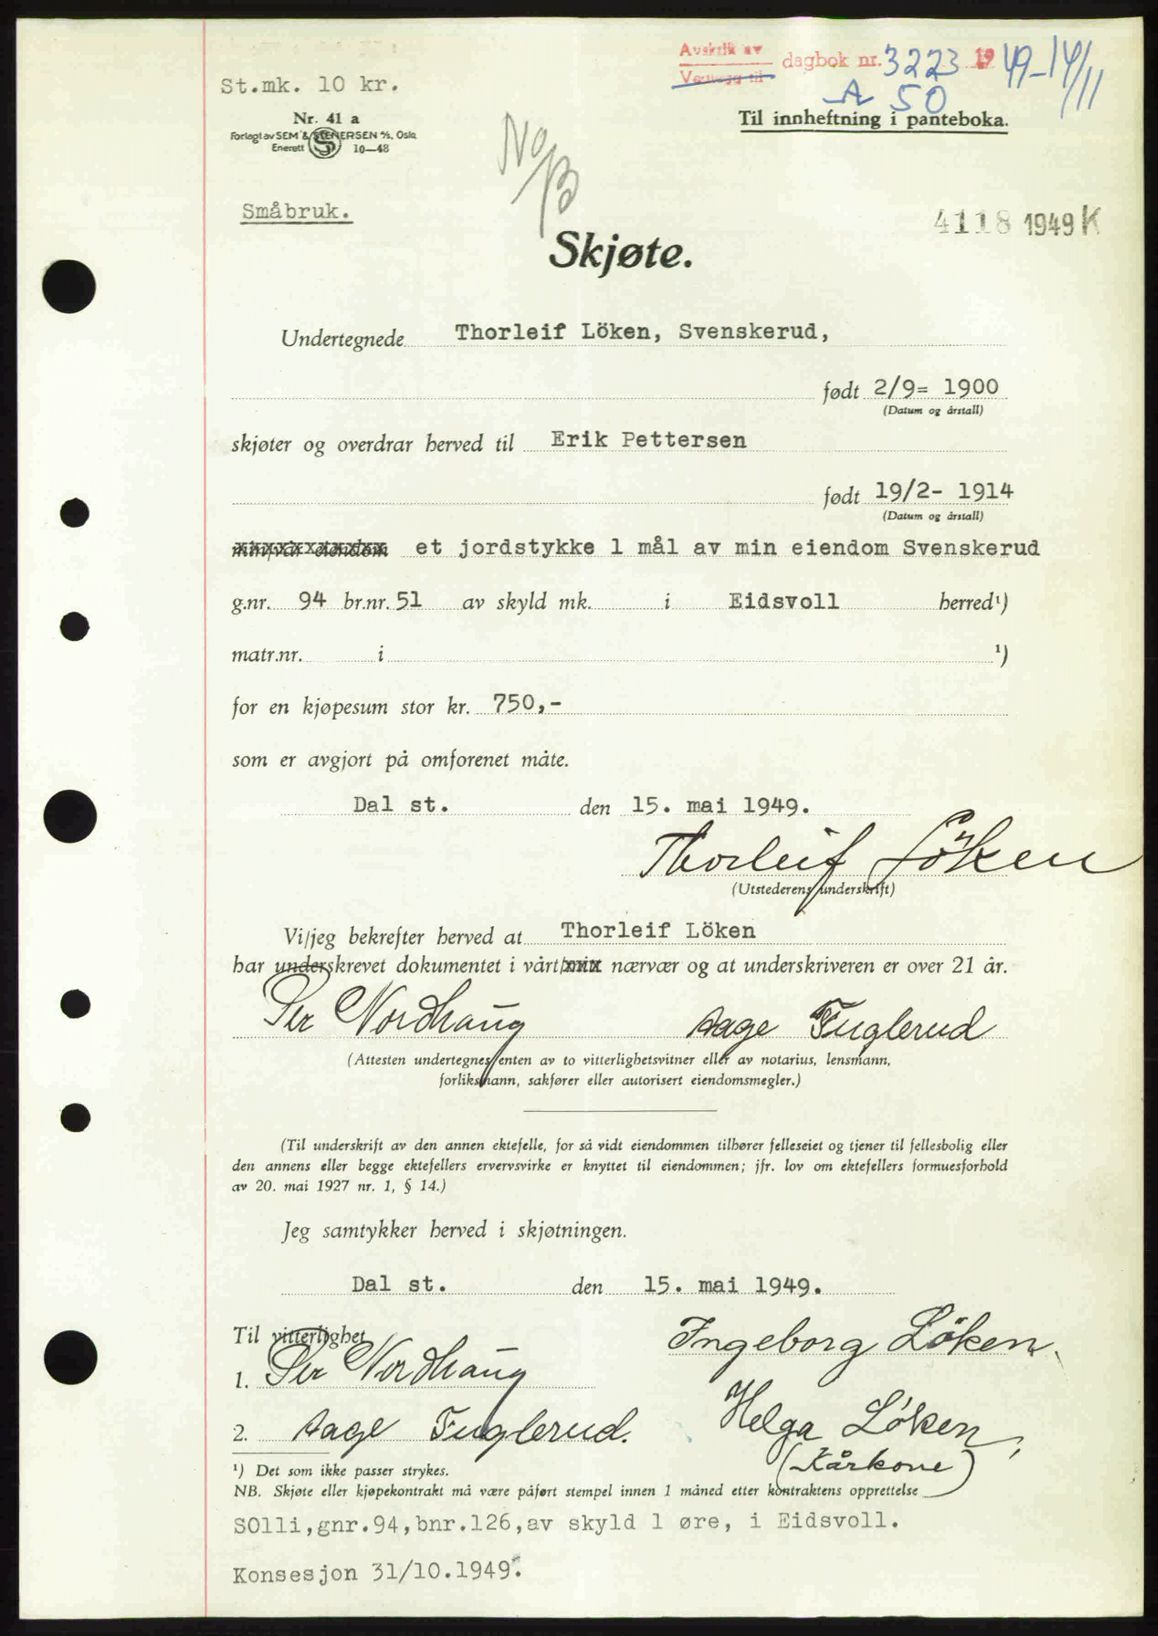 Avskrift av
Vedlegg til dagbok nr. 3223 1949-14/11
A 50
St.mk. 10 kr.
Til innheftning i panteboka.
Nr. 41 a
Forlagt av SEM & STENERSEN A/S, Oslo
Enerett S 10—48
No/B
Småbruk.
4118 1949 K
Skjøte.
Undertegnede Thorleif Löken, Svenskerud,
født 2/9= 1900
(Datum og årstall)
skjøter og overdrar herved til Erik Pettersen
født 19/2- 1914
(Datum og årstall)
min/vår eiendom et jordstykke 1 mål av min eiendom Svenskerud
g.nr. 94 br.nr. 51 av skyld mk. i Eidsvoll herred¹)
matr.nr. i ¹)
for en kjøpesum stor kr. 750,-
som er avgjort på omforenet måte.
Dal st. den 15. mai 1949.
Thorleif Löken
(Utstederens underskrift)
Vi/jeg bekrefter herved at Thorleif Löken
har underskrevet dokumentet i vårt/xxx nærvær og at underskriveren er over 21 år.
Per Nordhaug Aage Fuglerud
(Attesten undertegnes enten av to vitterlighetsvitner eller av notarius, lensmann,
forliksmann, sakfører eller autorisert eiendomsmegler.)
(Til underskrift av den annen ektefelle, for så vidt eiendommen tilhører felleseiet og tjener til fellesbolig eller
den annens eller begge ektefellers ervervsvirke er knyttet til eiendommen; jfr. lov om ektefellers formuesforhold
av 20. mai 1927 nr. 1, § 14.)
Jeg samtykker herved i skjøtningen.
Dal st. den 15. mai 1949.
Til vitterlighet Ingeborg Löken.
1. Per Nordhaug
Helga Löken,
2. Aage Fuglerud.
(Kårkone)
¹) Det som ikke passer strykes.
NB. Skjøte eller kjøpekontrakt må være påført stempel innen 1 måned etter kontraktens opprettelse
SOlli,gnr.94,bnr.126,av skyld 1 øre, i Eidsvoll.
Konsesjon 31/10.1949.